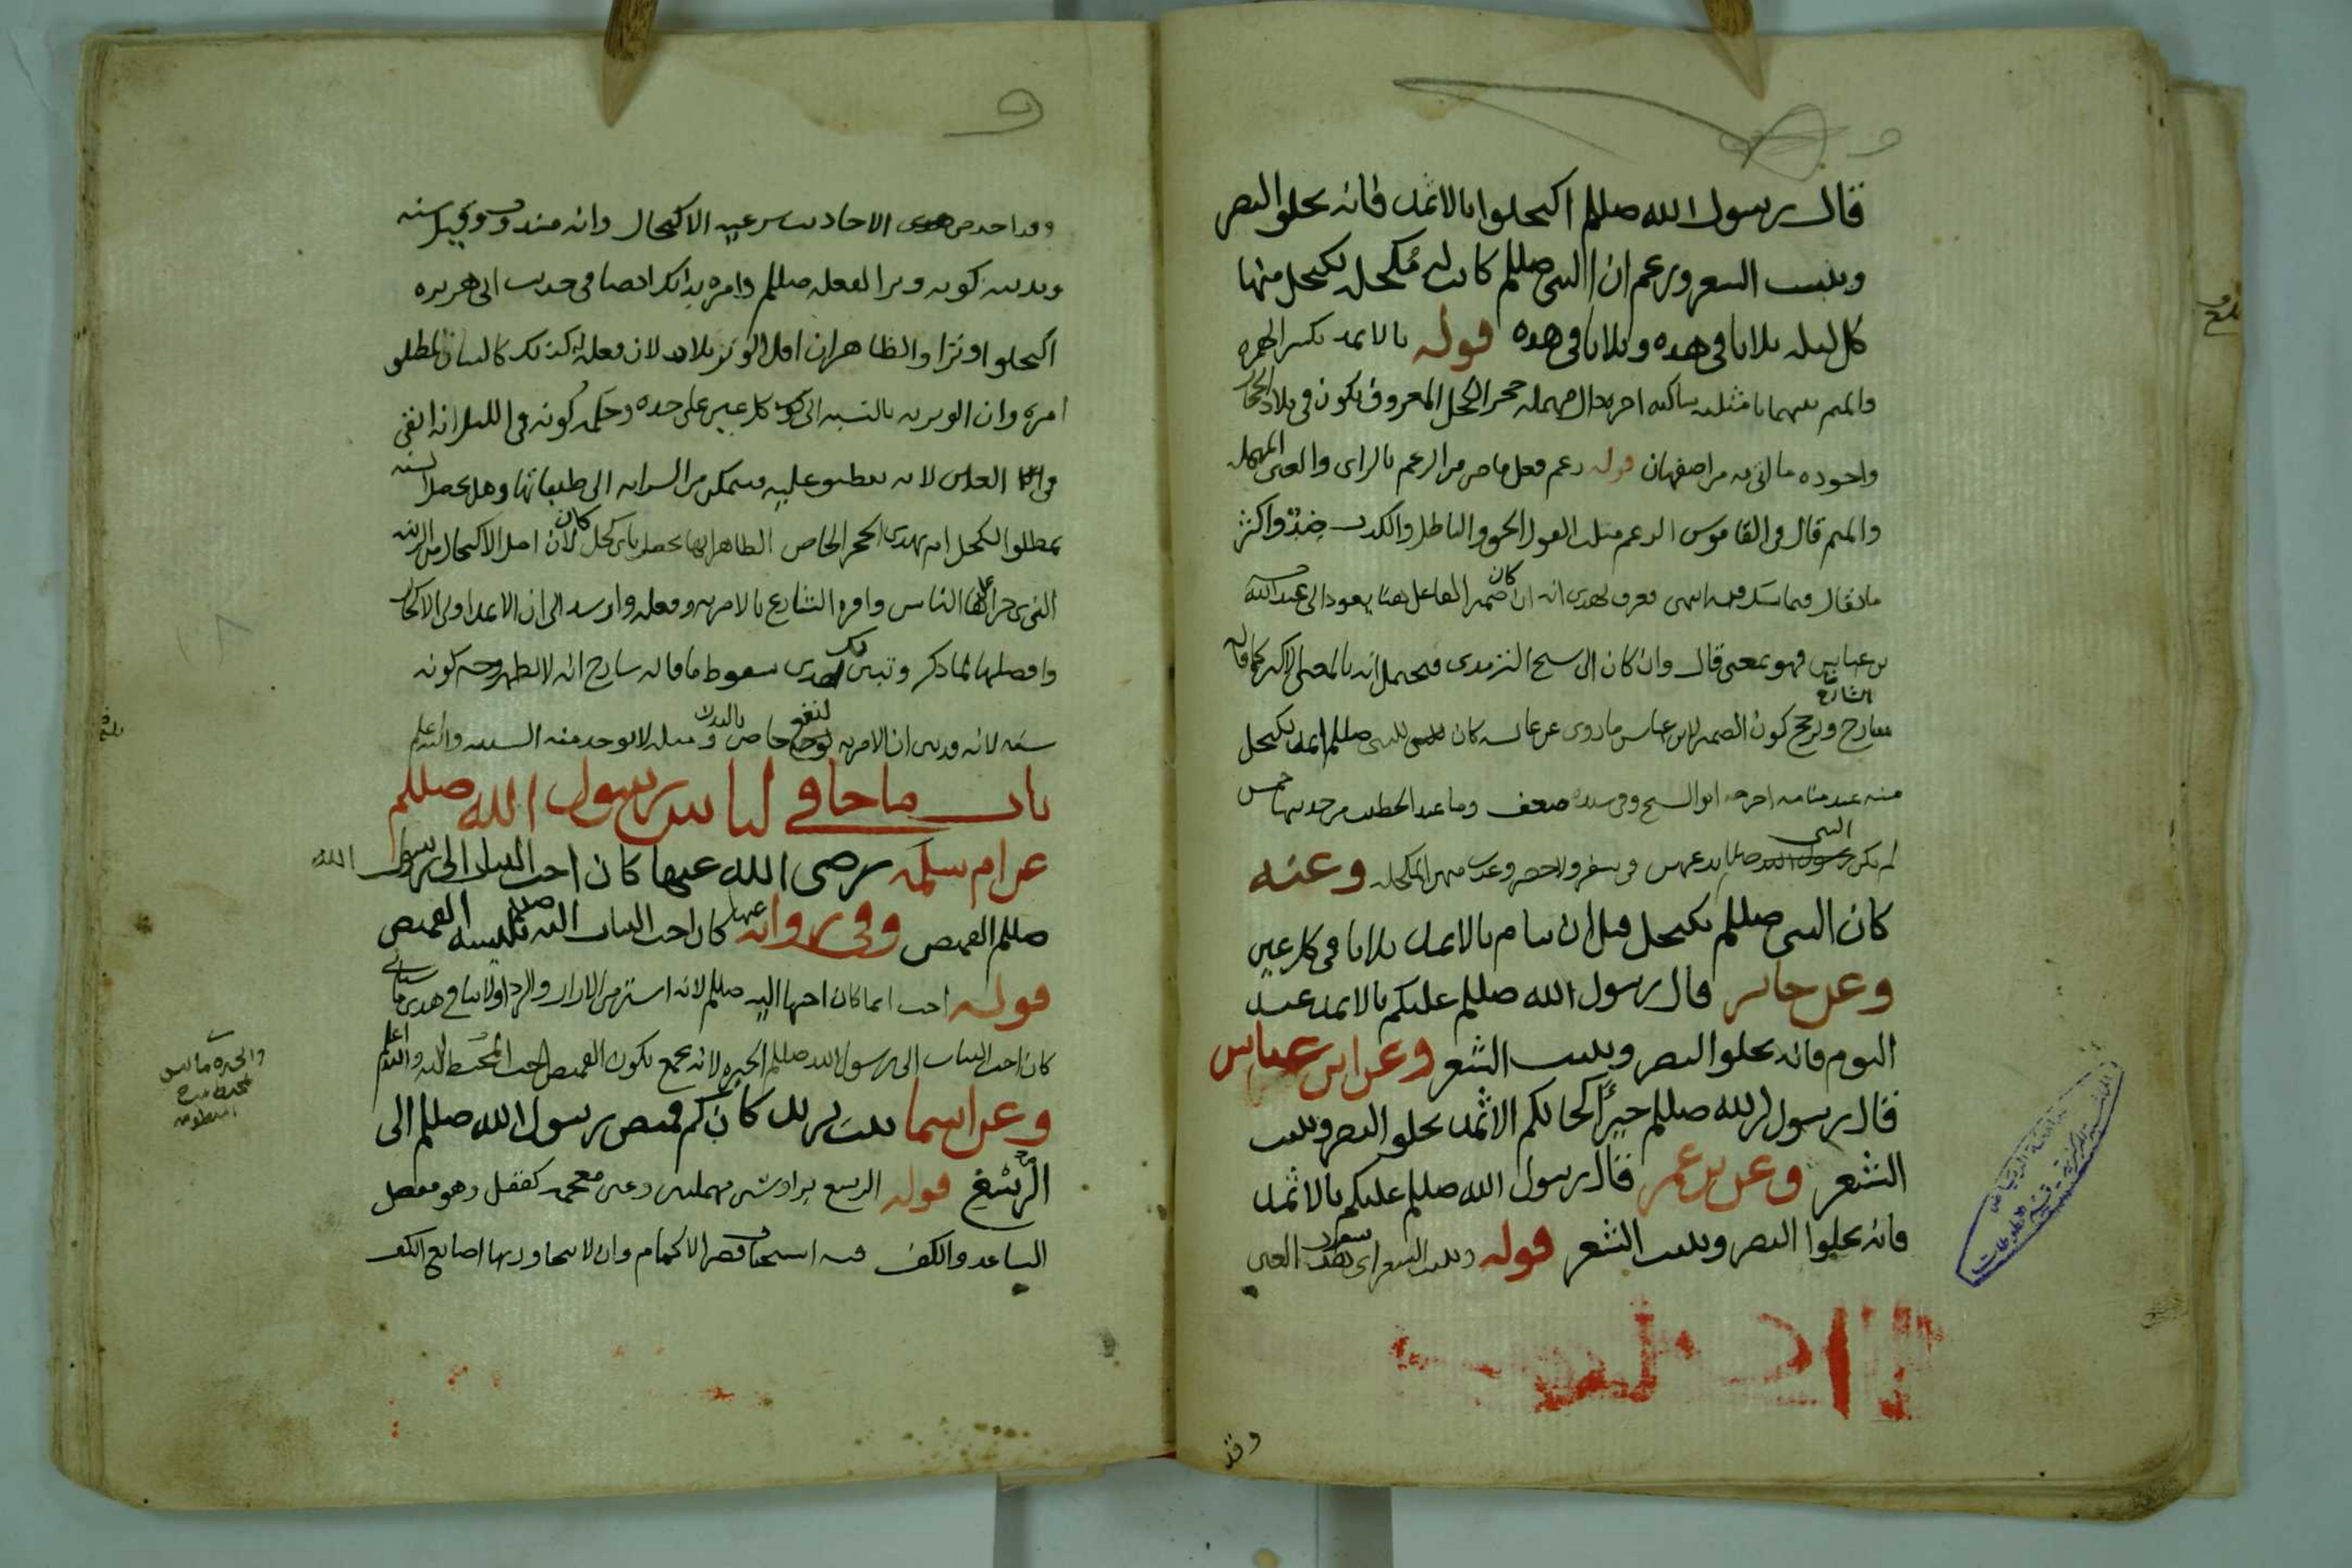 قال رسول الله صللم اكتحلوا بالاثمد فانه يجلو البصر
وينبت الشعر وزعم ان النبي صللم كانت له مُكحله يكتحل منها
كل ليله ثلاثا في هذه وثلاثا في هذه قوله بالاثمد بكسر الهمزه
والميم بينهما ثا مثلثه ساكنه اخره دال مهمله حجر الكحل المعروف يكون في بلاد الحجاز
واجوده ما اتي به من اصفهان قوله زعم فعل ماض من الزعم بالزاي والعين المهمله
والميم قال في القاموس الزعم مثلث القول الحق والباطل والكذب ضِدّ واكثر
ما يقال فيما يشك فيه انتهى فعرف بهذى انه ان كان ضمير الفاعل هنا يعود الى عبد الله
بن عباس فهو بمعنى قال وان كان الى شيخ الترمذي فيحتمل انه بالمعنى الاكثر كما قاله
شارح ويرجح كون الضمير لابن عباس ما روى عن عائشه كان للنبي صللم اثمد يكتحل
منه عند منامه اخرجه ابو الشيخ وفي سنده ضعف وما عند الخطيب من حديثها خمس
لم يكن النبي صللم يدعهن في سفر ولا حضر وعدت منهن المكحله وعنه
كان النبي صللم يكتحل قبل ان ينام بالاثمد ثلاثا في كل عين
وعن جابر قال رسول الله صللم عليكم بالاثمد عند
النوم فانه يجلو البصر وينبت الشعر وعن ابن عباس
قال رسول الله صللم خير اكحالكم الاثمد يجلو البصر وينبت
الشعر وعن بن عمر قال رسول الله صللم عليكم بالاثمد
فانه يجلوا البصر وينبت الشعر قوله وينبت الشعر اي شعر العين
وقد
وقد اخذ من هذى الاحاديث شرعيه الاكتحال وانه مندوب وقيل سنه
ويندب كونه وترا لفعله صللم وامره بذلك ايضا في حديث ابي هريره
اكتحلوا وترا والظاهر ان اقل الوتر ثلاث لان فعله له كذلك كالبيان لمطلق
امره وان الوتريه بالنسبه الى كل عين على حده وحكمه كونه في الليل انه ابقى
في العين لانه يطبق عليه فيتمكن من السرايه الى طبقاتها وهل تحصل السنه
بمطلق الكحل ام بهذى الحجر الخاص الظاهر انها تحصل باي كحل كان لان اصل الاكتحال من الزينه
وافضلها لما ذكر وتبين بهذى سقوط ما قاله شارح انه لا يظهر وجه كونه
سنه لانه قد تبين ان الامر به لنفع خاص بالبدن ومثله لا يوجد منه السنيه والله اعلم
باب ما جا في لباس رسول الله صللم
عن ام سلمه رضى الله عنها كان احب الثياب الى رسول الله
صللم القميص وفي روايه عنها كان احب الثياب اليه صللم يلبسه القميص
قوله احب انما كان احبها اليه صللم لانه استر من الازار والردا ولا ينافي هذى ما سياتي
كان احب الثياب الى رسول الله صللم الحبره لانه يجمع بكون القميص احب المخيط اليه والله اعلم
والحبره ما ليس
بمخيط
وعن اسما بنت يزيد كان كم قميص رسول الله صللم الى
الرسغ قوله الرسغ برا وسين مهملتين وغين معجمه كقفل وهو مفصل
الساعد والكف فيه استحباب قصر الاكمام وان لا يتجاوز بها اصابع الكف